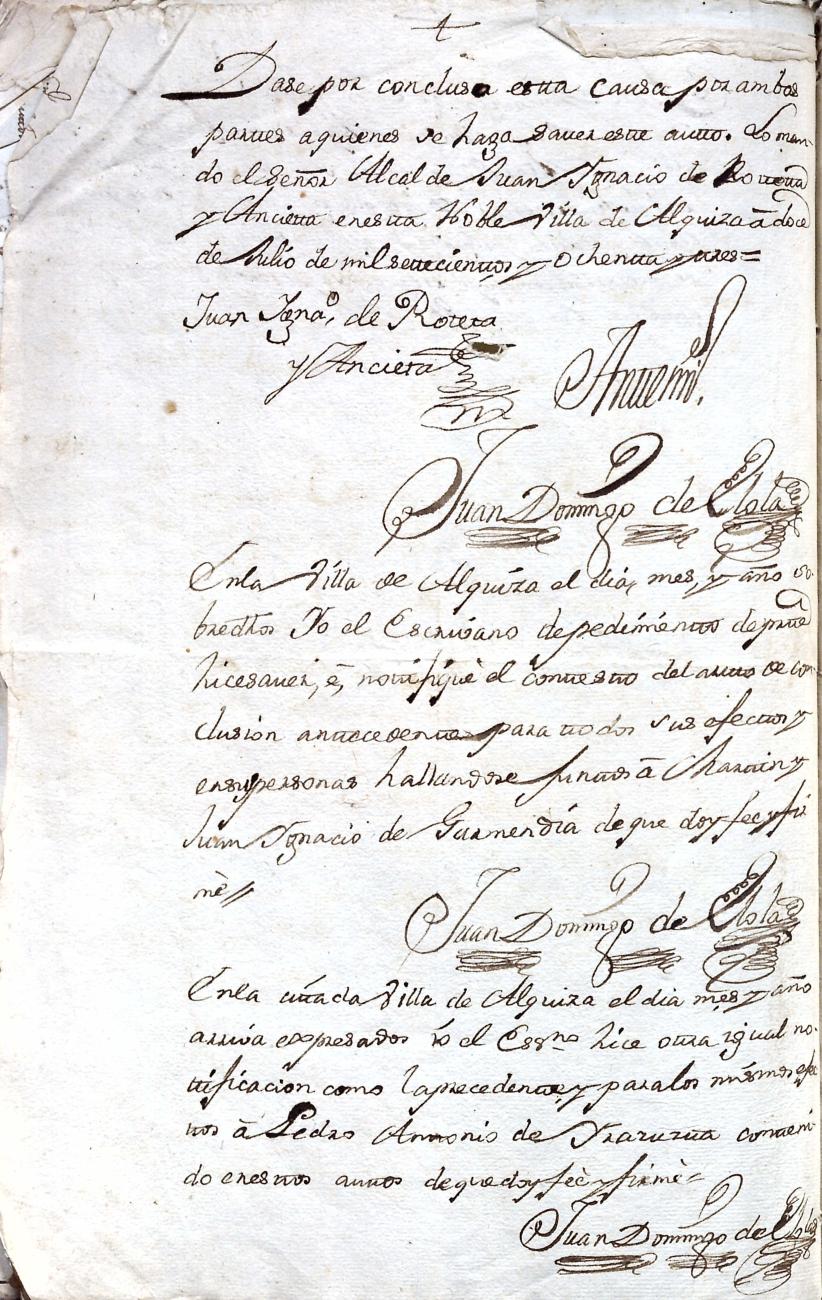 Dase por conclusa esta causa por ambas
partes a quienes se haga saver este auto. Lo man-
do el Señor Alcalde Juan Ignacio de Roteta
y Ancieta en esta Noble Villa de Alquiza â doce
de Julio de mil setecientos y ochenta y tres=
Juan Ignaº. de Roteta
y Ancieta
Antemi.
Juan Domingo de Elola
En la Villa de Alquiza el dia, mes, y año so-
bredhos Yo el Escrivano de pedimento de parte
hice saver, é, notifiquè el contesto del auto de con-
clusion antecedente para todos sus efectos y
en sus personas hallandose juntos â Martin y
Juan Ignacio de Garmendia de que doy fee y fir
mè//
Juan Domingo de Elola
En la citada Villa de Alquiza el dia mes y año
arriva expresados Yo el Essno hice otra igual no-
tificacion como la precedente y para los mismos efec
tos â Pedro Antonio de Yrazuzta conteni-
do en estos autos de que doy feè y firmè=
Juan Domingo de Elola